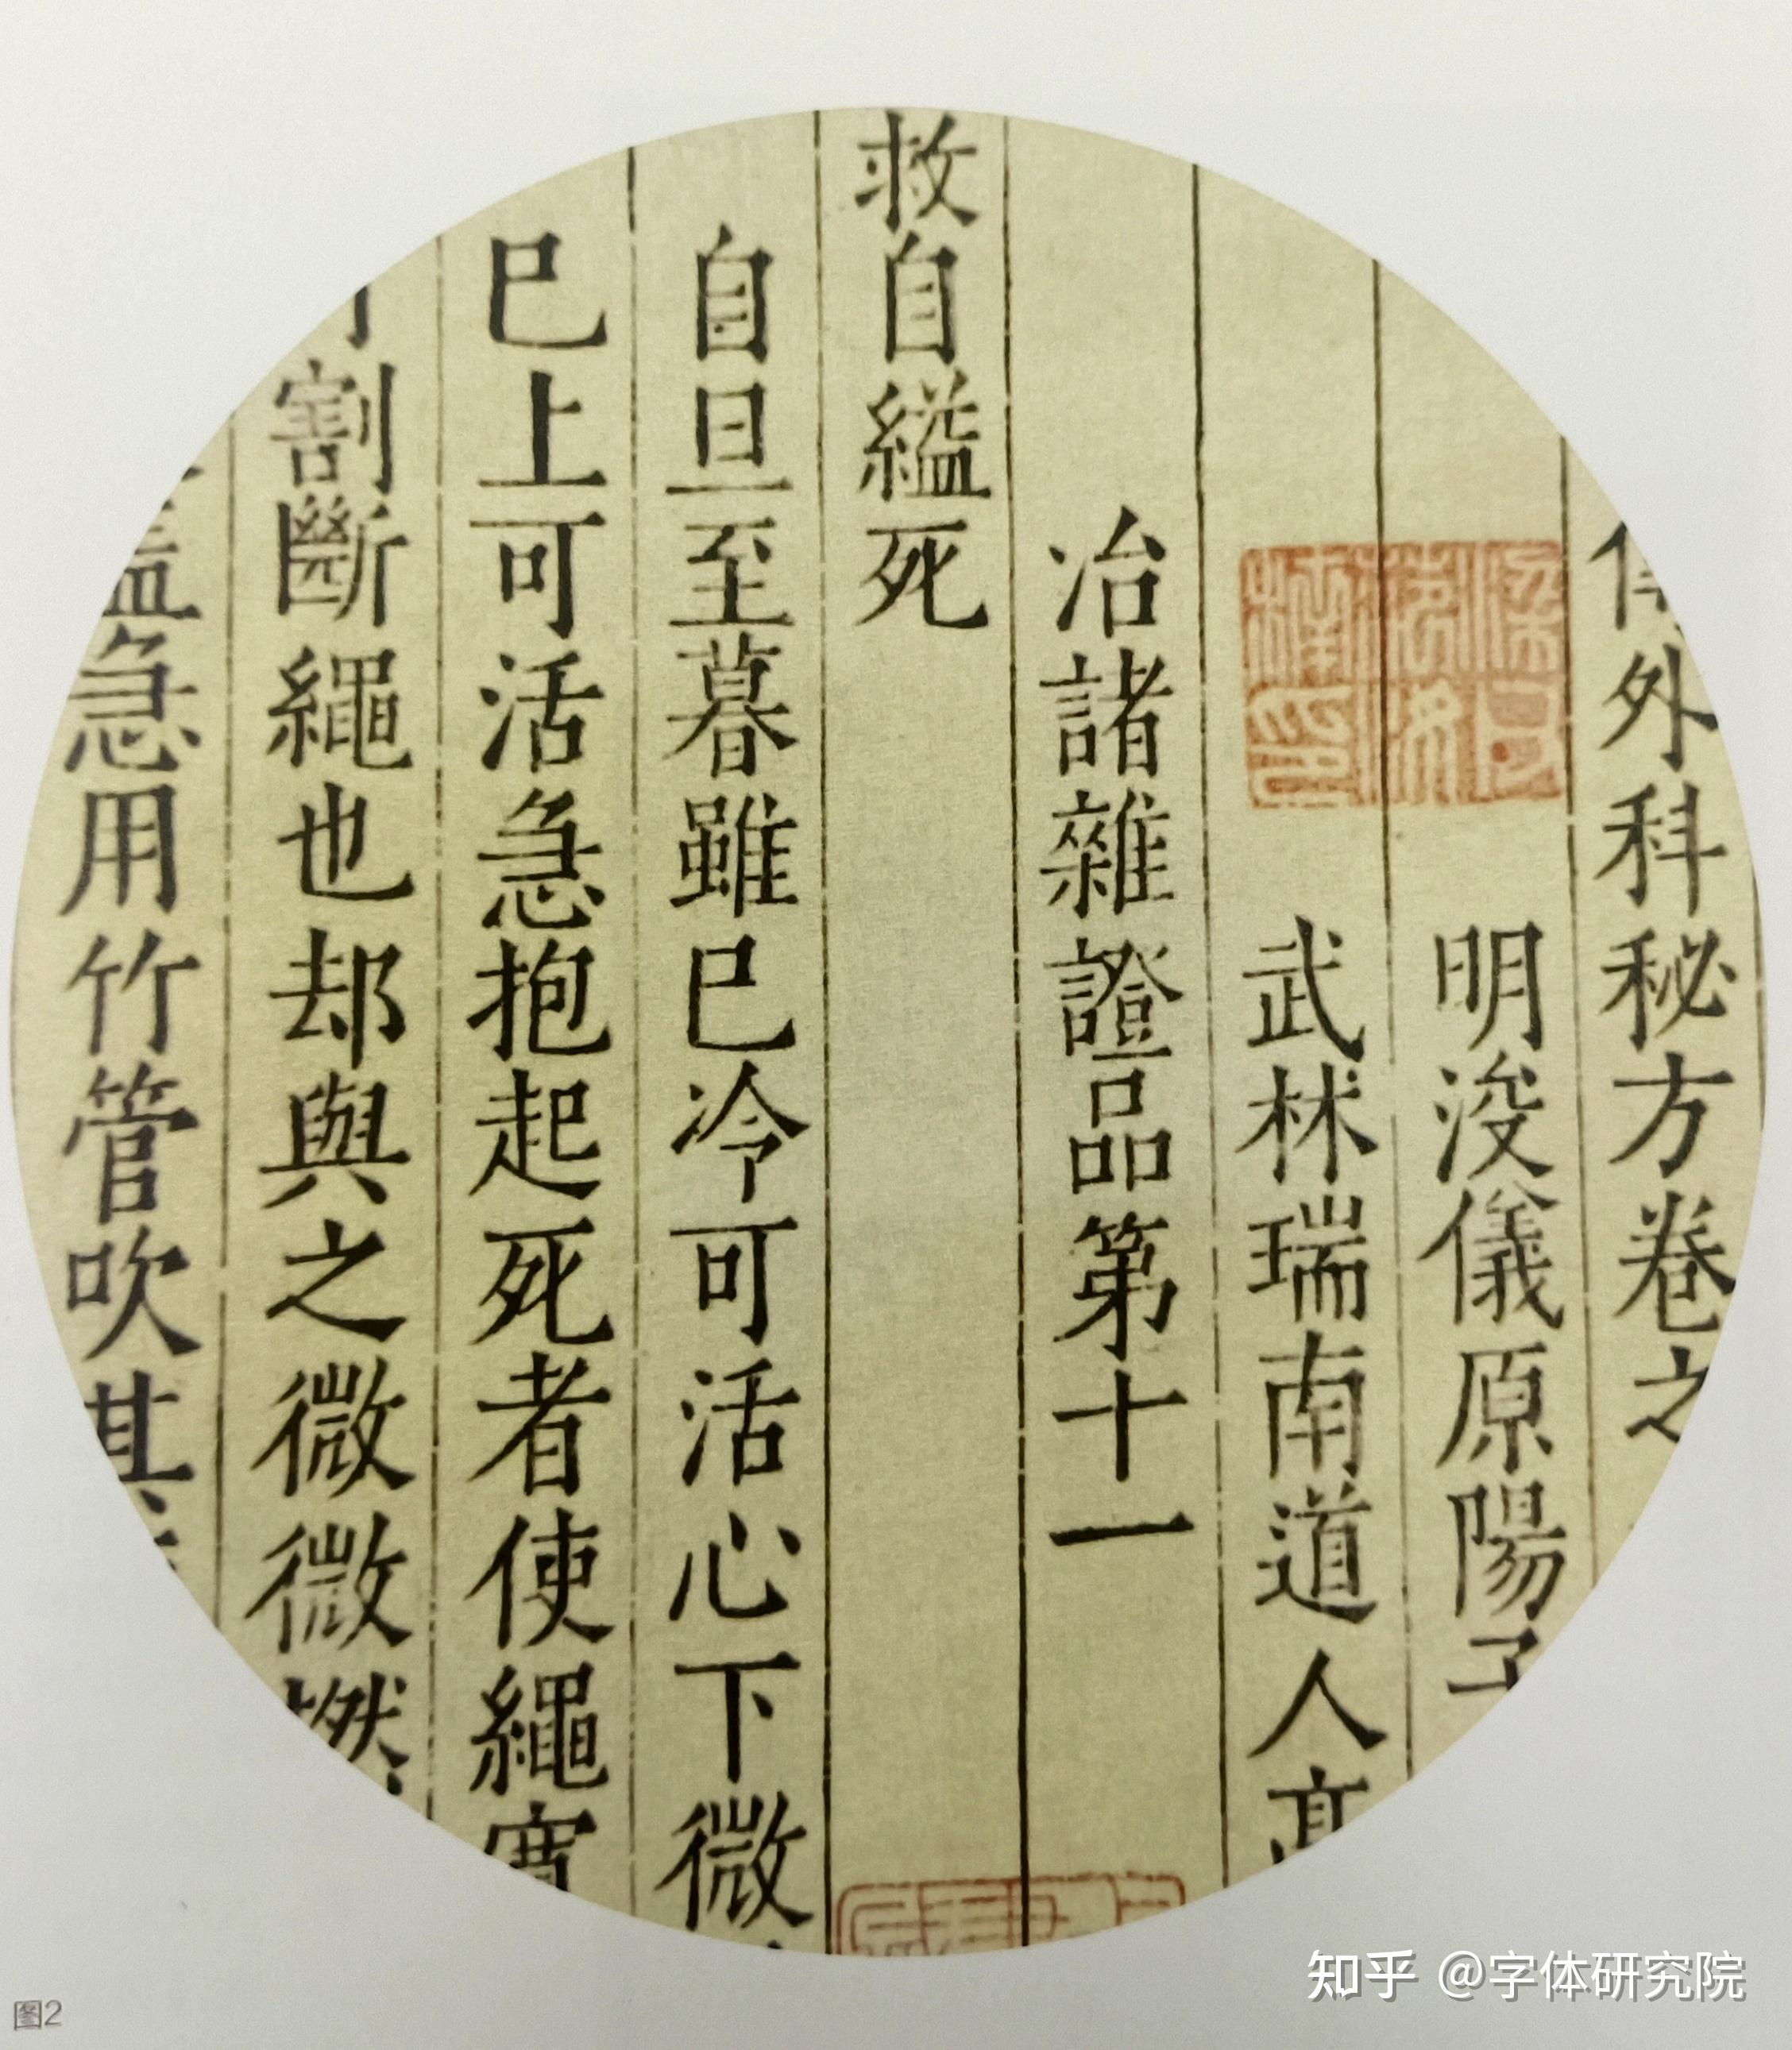 外科秘方卷之
明浚儀原陽子
武林瑞南道人高
冶諸雜證品第十一
救自縊死
自旦至暮雖巳冷可活心下微
巳上可活急抱起死者使繩寬
割斷繩也却與之微微撚
急用竹管吹其
图2
知乎 @字体研究院